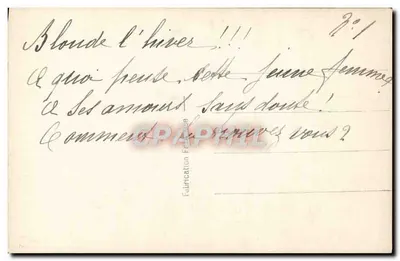 2°/
Blonde l'hiver !!!
A quoi pense cette jeune femme?
A ses amours sans doute!
Comment la trouvez vous?
CPAPHIL
Fabrication Française